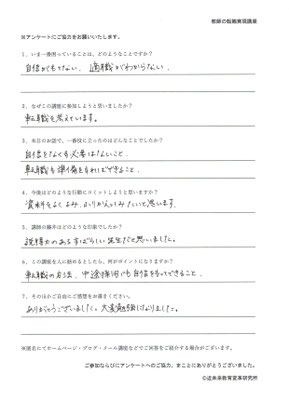 教師の転職実現講座
※アンケートにご協力をお願いいたします。
1、いま一番困っていることは、どのようなことですか?
自信がもてない、適職がわからない。
2、なぜこの講座に参加しようと思いましたか?
転職を考えています。
3、本日のお話で、一番役に立ったのはどんなことでしたか?
自信をなくす必要はないこと。
転職も準備をすればできること。
4、今後はどのような行動にコミットしようと思いますか?
資料をよくよみ、ふりかえってみたいと思います。
5、講師の藤井はどのような印象でしたか?
説得力のあるすばらしい先生だと思いました。
6、この講座を人に勧めるとしたら、何がポイントになりますか?
転職の方法、中途採用でも自信をもってできること。
7、そのほかご自由にご感想をお書きください。
ありがとうございました。大変勉強になりました。
※匿名にてホームページ・ブログ・メール講座などでご回答をご紹介する場合がございます。
ご参加ならびにアンケートへのご協力、まことにありがとうございました。
©近未来教育変革研究所